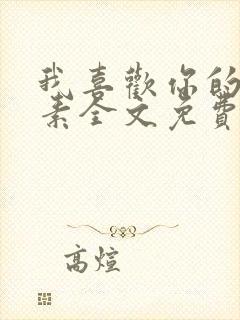 我喜歡你的
素全文免費
高煊